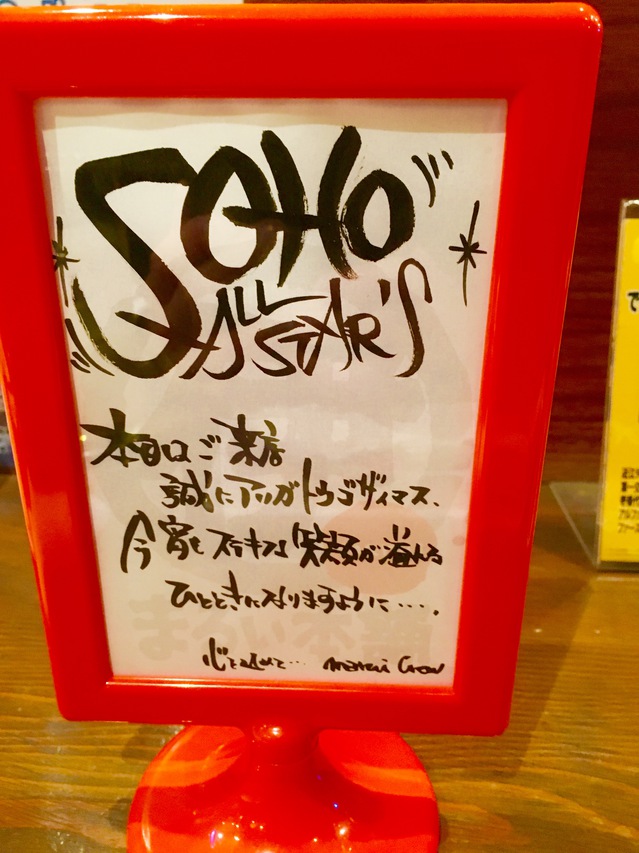 SOHO
ALL STAR'S
本日はご来店
誠にアリガトウゴザイマス、
今宵もステキな笑顔が溢れる
ひとときになりますように….
心を込めて…